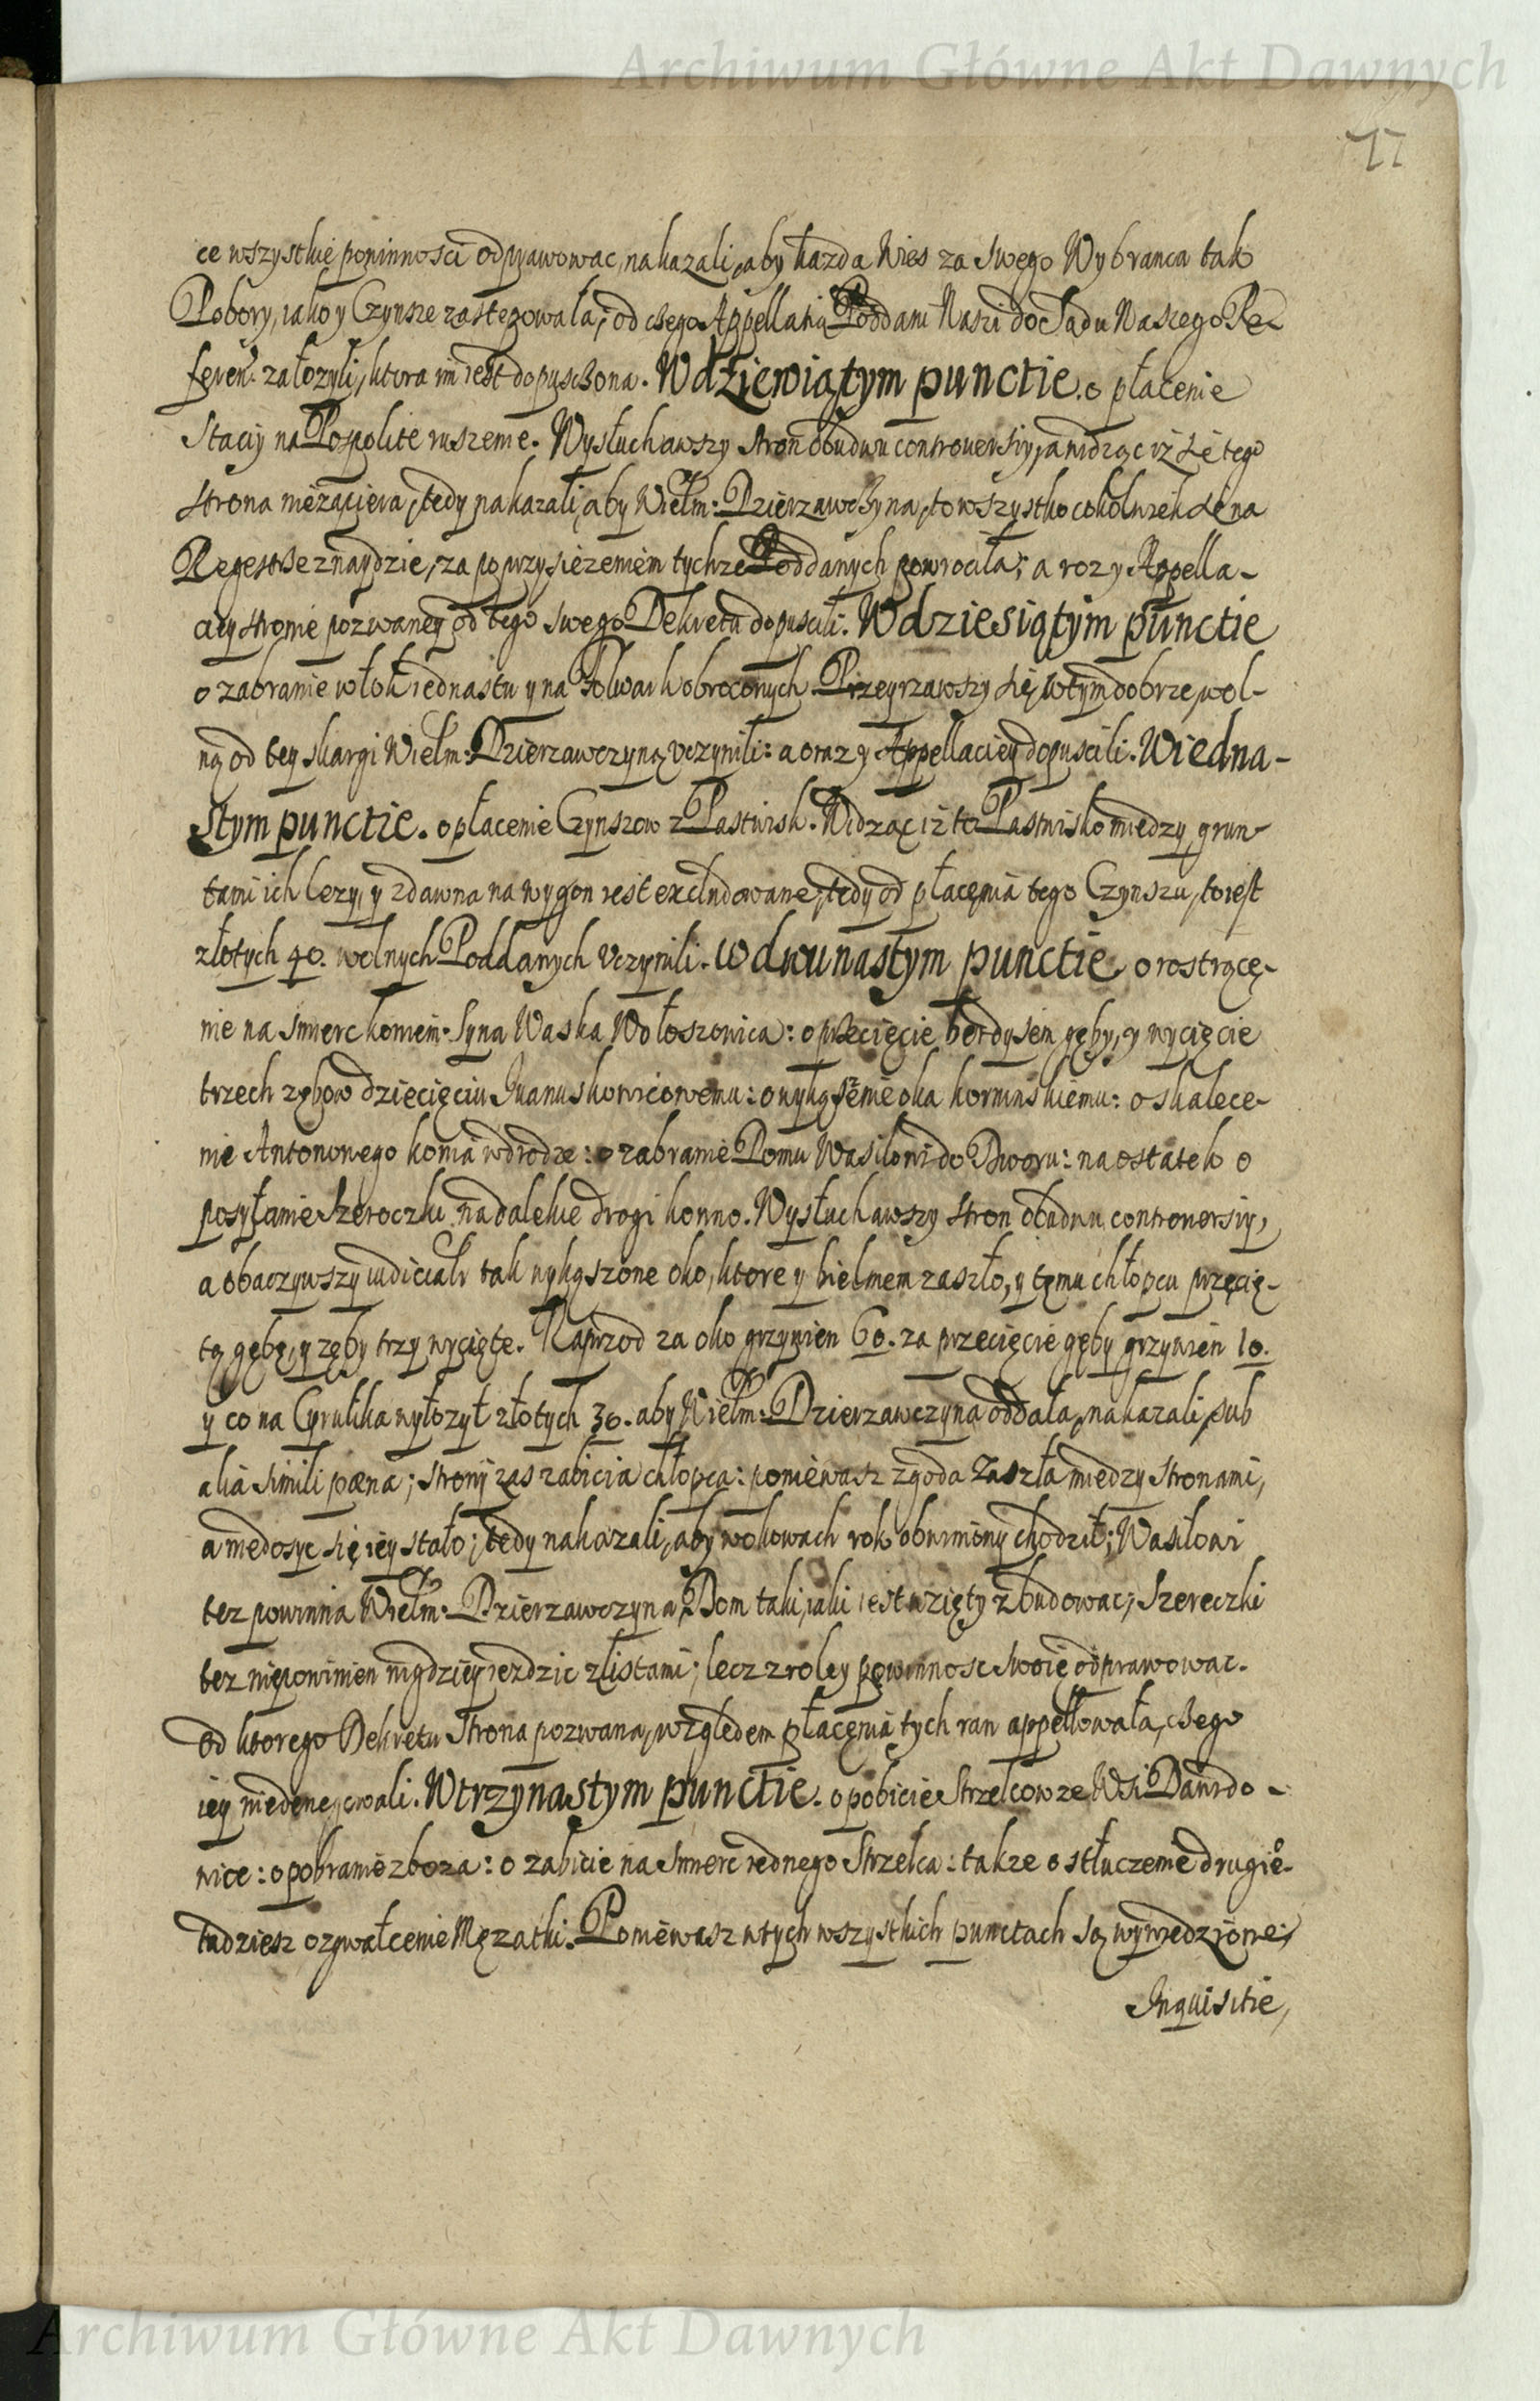 Archiwum Główne Akt Dawnych
77
ce wszystkie powinnosci odprawowac, nakazali, aby kazda Wies za swego Wybranca tak
Pobory, iako y Czynsze zastępowała; od czego Appellatią Poddani Nasi do Sądu Naszego Re-
feren. załozyli, ktora im iest dopusczona. W dziewiątym punctie. o płacenie
Staciy na Pospolite ruszenie. Wysłuchawszy stron obudwu controuersiy, a widząc iż się tego
strona niezapiera, tedy nakazali, aby Wielm: Dzierzawczyna, to wszystko cokolwiek się na
Regestrze znaydzie, za poprzysiezeniem tychze Poddanych powrociła; a
Appella-
ciey stronie pozwaney od tego swego Dekretu dopuscili. W dziesiątym punctie
o zabranie włok iednastu y na Folwark obroconych. Przeyrzawszy się w tym dobrze, wol-
ną od tey skargi Wielm: Dzierzawczyną vczynili: a oraz y Appellaciey dopuscili. W iedna-
stym punctie. o płacenie Czynszow z Pastwisk. Widząc iż to Pastwisko miedzy grun-
tami ich lezy, y zdawna na wygon iest excludowane, tedy od płacenia tego Czynszu, to iest
złotych 40. wolnych Poddanych vczynili. W dwunastym punctie o rostrące-
nie na smierc koniem Syna Waska Wołoszowica: o przecięcie berdysem gęby, y wycięcie
trzech zębow dziecięciu Iwanuskowicowemu: o wykąszenie oka korninskiemu: o skalece-
nie Antonowego konia w drodze: o zabranie Domu Wasilowi do Dworu: na ostatek o
posyłanie Szeroczki na dalekie drogi konno. Wysłuchawszy stron obudwu controuersiy,
a obaczywszy iudicialr tak wykąszone oko, ktore y bielmem zaszło, y temu chłopcu przecię-
tą gębę, y zęby trzy wycięte. Naprzod za oko grzywien 60. za przecięcie gęby grzywien 10.
y co na Cyrulika wyłozył złotych 30. aby Wielm: Dzierzawczyna oddała, nakazali, sub
alia simili pœna; strony zas zabicia chłopca: poniewasz zgoda zaszła miedzy stronami,
a niedosyc się iey stało; tedy nakazali, aby w okowach rok obwiniony chodził; Wasilowi
tez powinna Wielm: Dzierzawczyna, Dom taki, iaki iest wzięty zbudowac; Szereczki
tez niepowinien nigdziey iezdzic z listami; lecz z roley powinnosc swoię odprawowac.
Od ktorego Dekretu Strona pozwana, względem płacenia tych ran appellowała, czego
iey niedenegowali. W trzynastym punctie. o pobicie Strzelcow ze Wsi Dawido-
wice: o pobranie zboza: o zabicie na smierc iednego Strzelca: takze o stłuczenie drugie-
tudziesz o zgwałcenie Męzatki. Poniewasz w tych wszystkich punctach są wywiedzione
Inquisitie,
Archiwum Główne Akt Dawnych